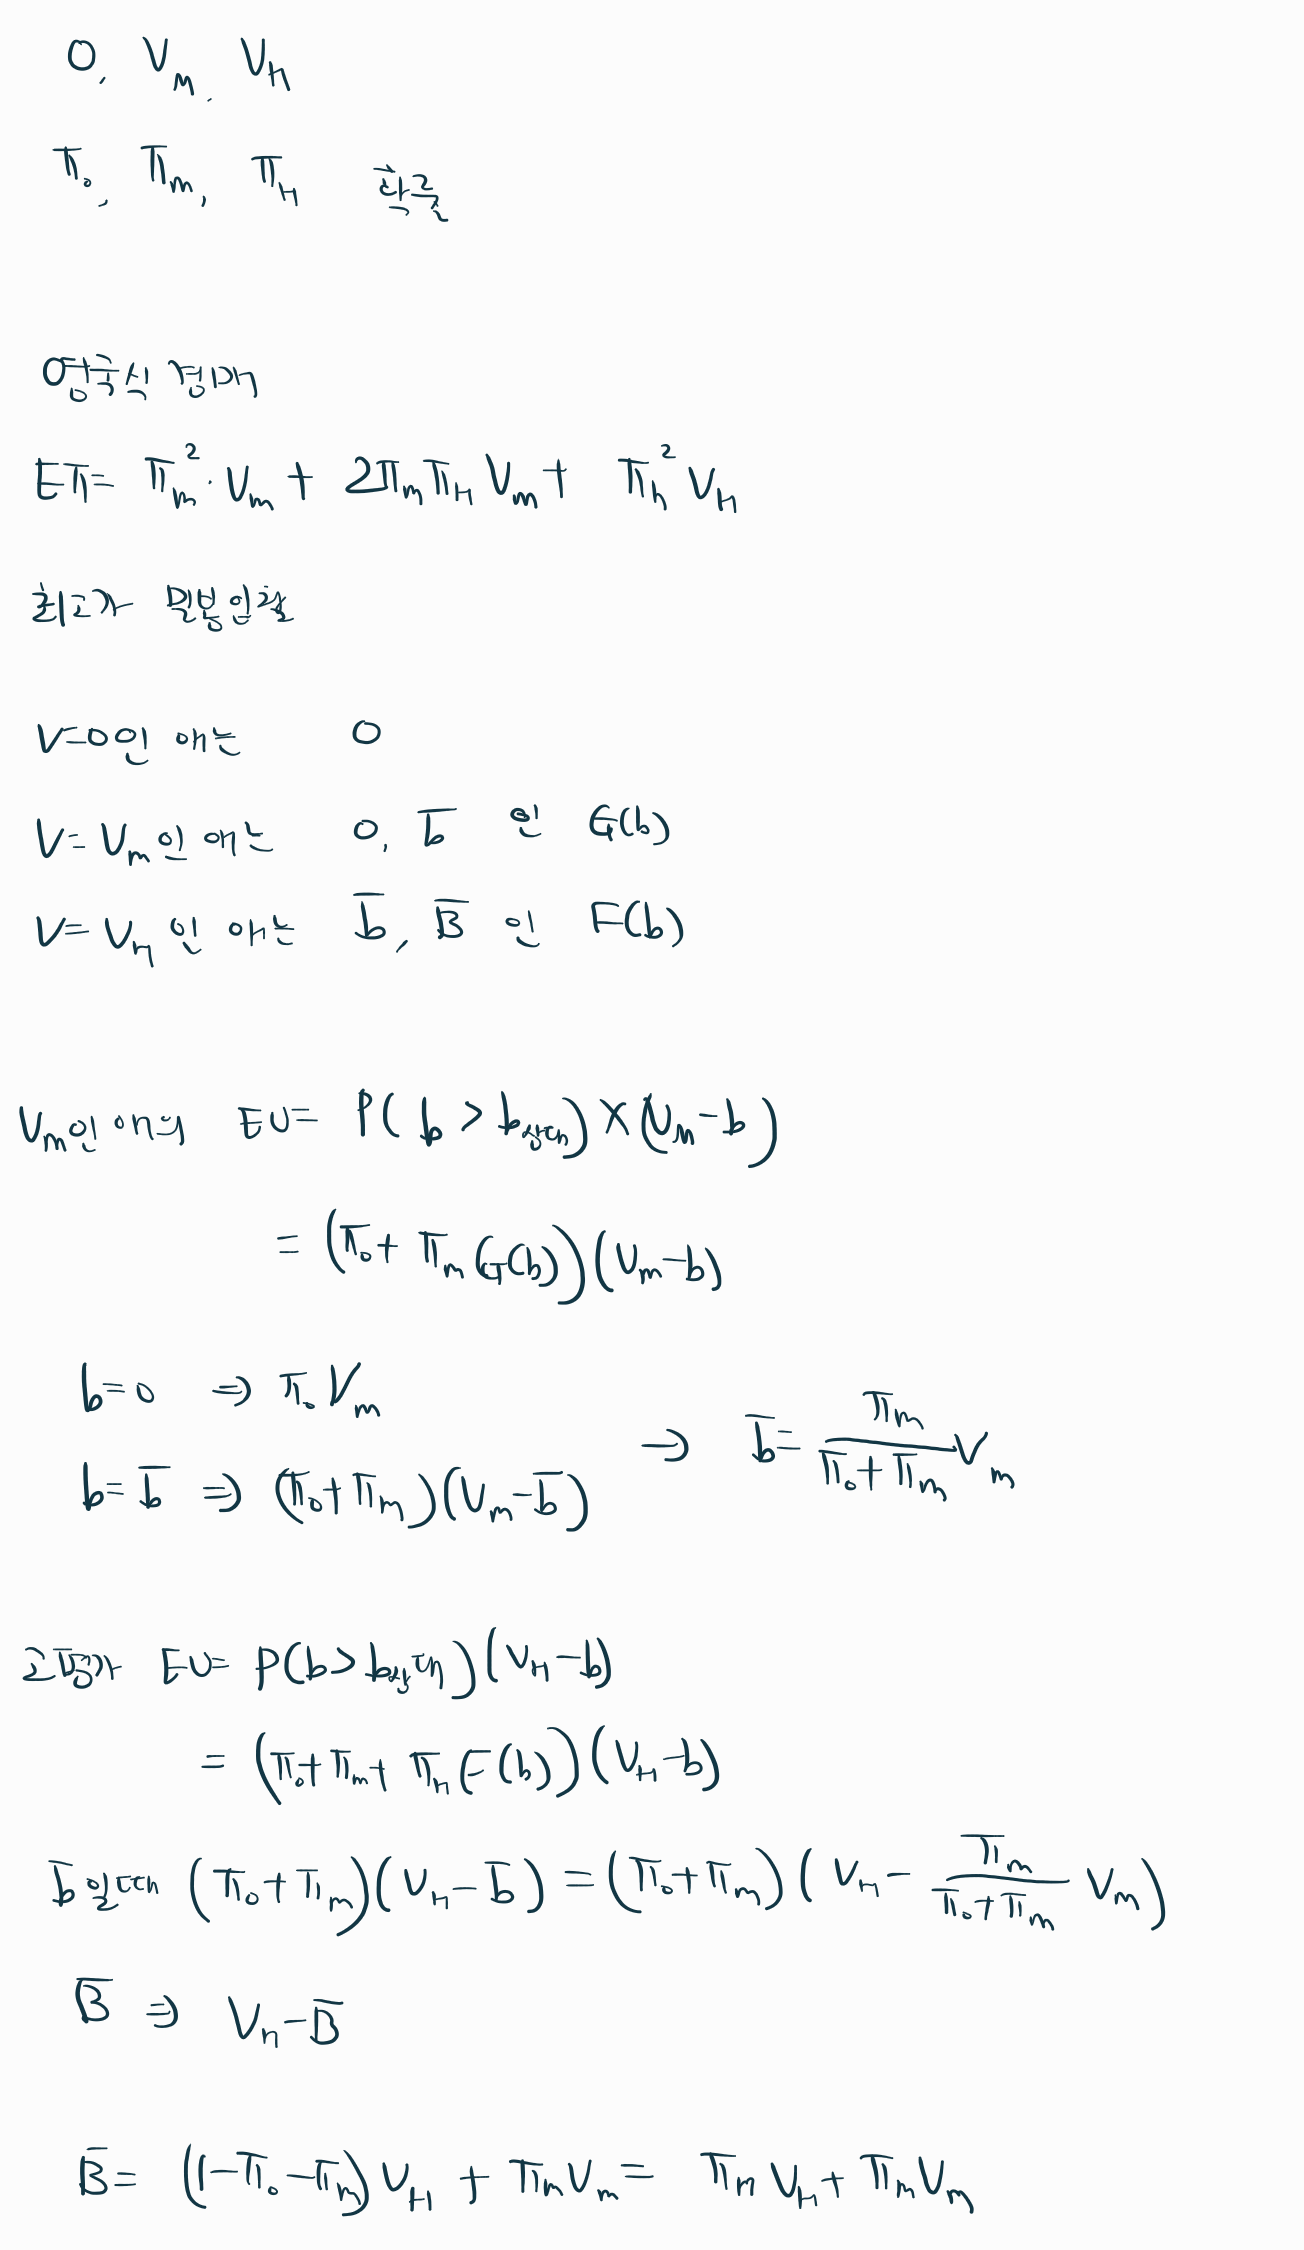 0, Vm, VH
π₀, πm, πH 확률
영국식 경매
Eπ= πm²·Vm + 2πmπHVm + πh²VH
최고가 밀봉입찰
V=0인 애는 0
V=Vm인 애는 0, b̅ 인 G(b)
V=VH인 애는 b̅, B̅ 인 F(b)
Vm인 애의 EU= P(b > b상대)×(Vm-b)
= (π₀+ πm G(b))(Vm-b)
b=0 ⇒ π₀Vm
b=b̅ ⇒ (π₀+πm)(Vm-b̅) → b̅= πm/(π₀+πm) Vm
고평가 EU= P(b>b상대)(VH-b)
= (π₀+πm+ πH F(b))(VH-b)
b̅일때 (π₀+πm)(VH-b̅) = (π₀+πm)(VH- πm/(π₀+πm) Vm)
B̅ ⇒ VH-B̅
B̅= (1-π₀-πm)VH + πmVm= πHVH+ πmVm